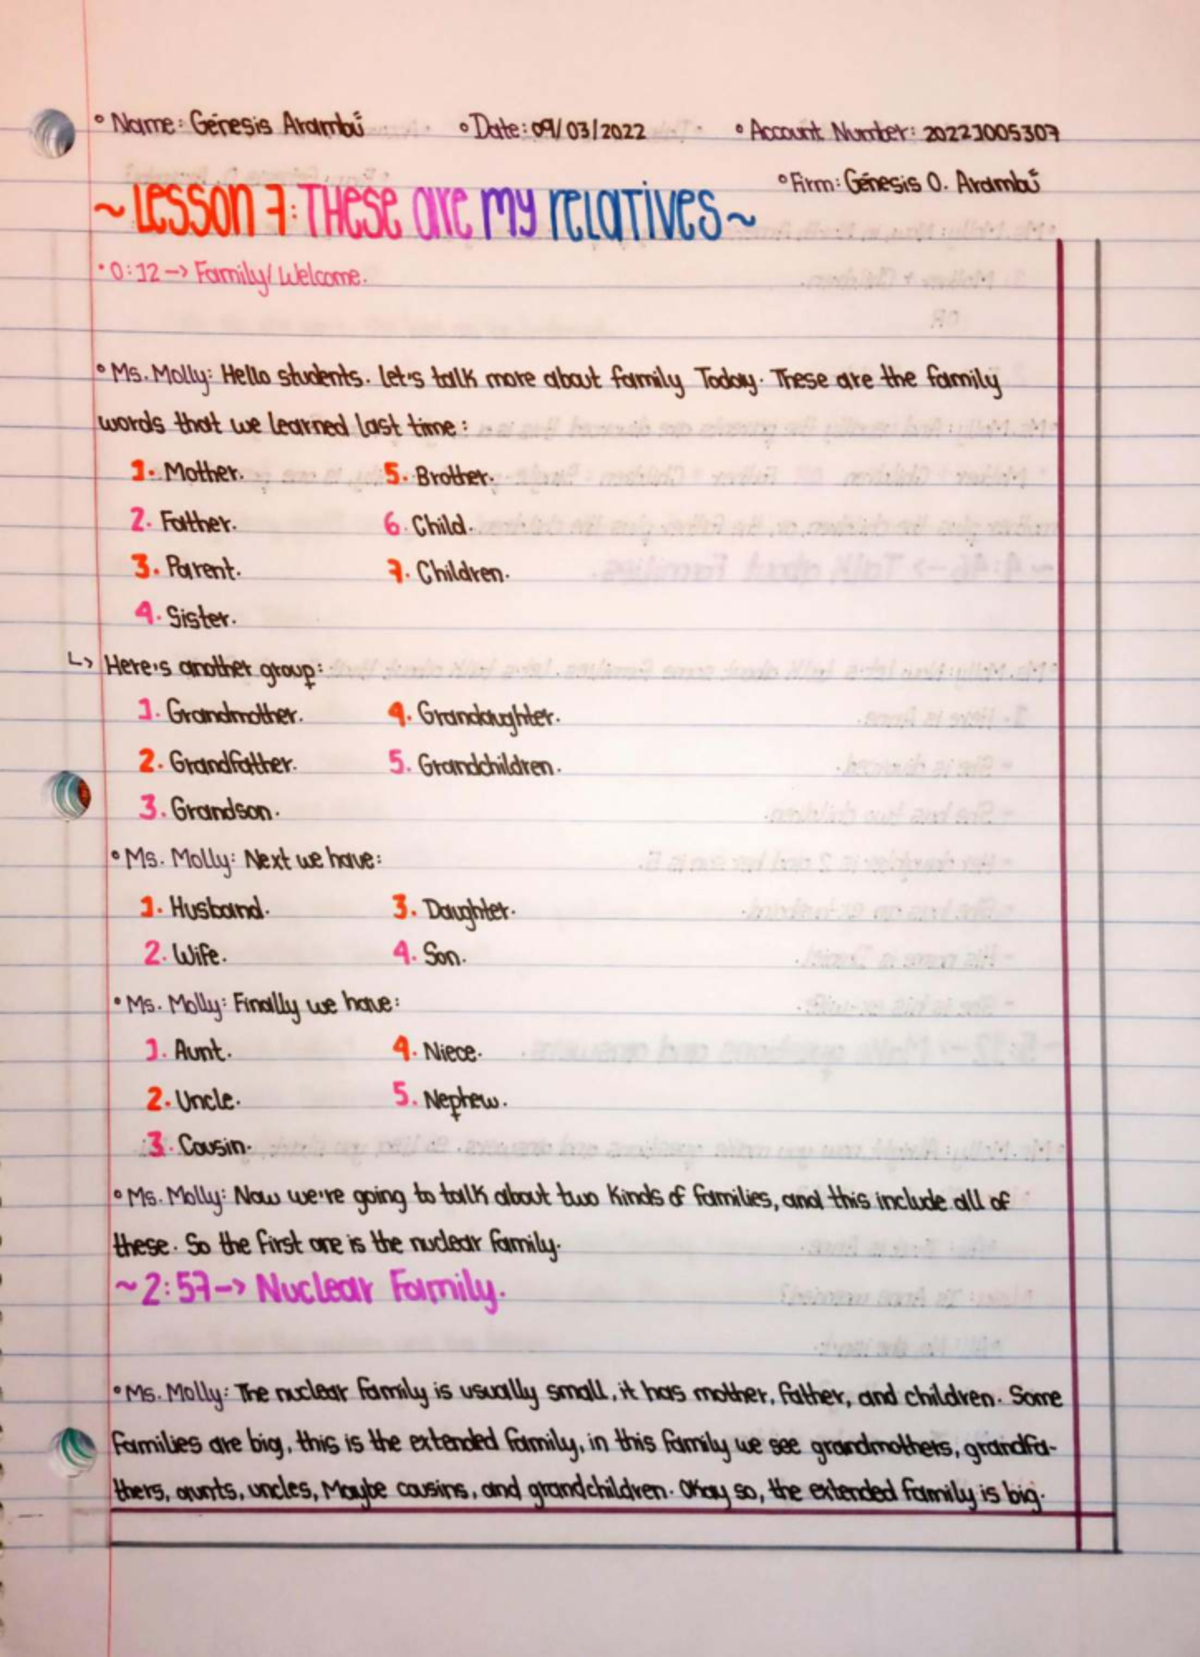 ° Name: Génesis Arambú   ° Date: 09/03/2022   ° Account Number: 20221005307
° Firm: Génesis O. Arambú
~ Lesson 7: These are my relatives ~
· 0:12 -> Family/Welcome.
° Ms. Molly: Hello students. Let's talk more about family Today. These are the family
words that we learned last time:
1. Mother.   5. Brother.
2. Father.   6. Child.
3. Parent.   7. Children.
4. Sister.
↳ Here's another group:
1. Grandmother.   4. Grandaughter.
2. Grandfather.   5. Grandchildren.
3. Grandson.
° Ms. Molly: Next we have:
1. Husband.   3. Daughter.
2. Wife.   4. Son.
° Ms. Molly: Finally we have:
1. Aunt.   4. Niece.
2. Uncle.   5. Nephew.
3. Cousin.
° Ms. Molly: Now we're going to talk about two kinds of families, and this include all of
these. So the first one is the nuclear family.
~ 2:57 -> Nuclear Family.
° Ms. Molly: The nuclear family is usually small, it has mother, father, and children. Some
families are big, this is the extended family, in this family we see grandmothers, grandfa-
thers, aunts, uncles, Maybe cousins, and grandchildren. Okay so, the extended family is big.